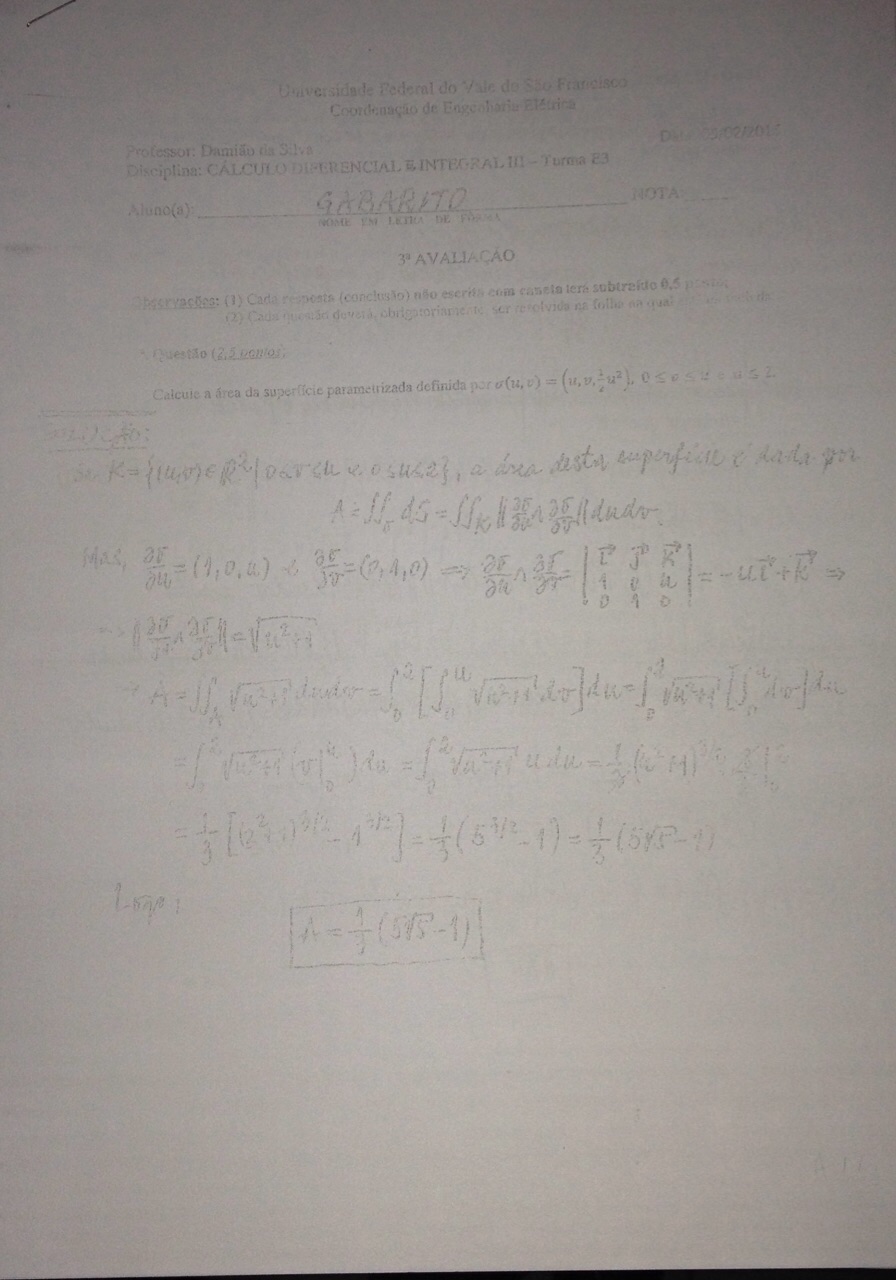 Universidade Federal do Vale do São Francisco
Coordenação de Engenharia Elétrica
Professor: Damião da Silva
Disciplina: CÁLCULO DIFERENCIAL E INTEGRAL III – Turma E3
Aluno(a): GABARITO NOTA:
NOME EM LETRA DE FÔRMA
3ª AVALIAÇÃO
Observações: (1) Cada resposta (conclusão) não escrita com caneta terá subtraído 0,5
(2) Cada questão deverá, obrigatoriamente, ser resolvida na folha na qual
Questão (2,5 pontos).
Calcule a área da superfície parametrizada definida por σ(u, v) = (u, v, ½u²), 0 ≤ v ≤ u e u ≤ 2.
K = {(u,v) ∈ R² | 0 ≤ v ≤ u e 0 ≤ u ≤ 2}, a área desta superfície é dada por
A = ∬_σ dS = ∬_K ‖∂σ/∂u ∧ ∂σ/∂v‖ du dv.
Mas, ∂σ/∂u = (1, 0, u) e ∂σ/∂v = (0, 1, 0) ⟹ ∂σ/∂u ∧ ∂σ/∂v = | i⃗ j⃗ k⃗ ; 1 0 u ; 0 1 0 | = -u i⃗ + k⃗ ⟹
⟹ ‖∂σ/∂u ∧ ∂σ/∂v‖ = √(u²+1)
A = ∬_K √(u²+1) du dv = ∫₀² [∫₀ᵘ √(u²+1) dv] du = ∫₀² √(u²+1) [∫₀ᵘ dv] du
= ∫₀² √(u²+1) (v|₀ᵘ) du = ∫₀² √(u²+1) u du = ½ (u²+1)^{3/2} · ⅔ |₀²
= 1/3 [(2²+1)^{3/2} - 1^{3/2}] = 1/3 (5^{3/2} - 1) = 1/3 (5√5 - 1)
Logo,
A = 1/3 (5√5 - 1)